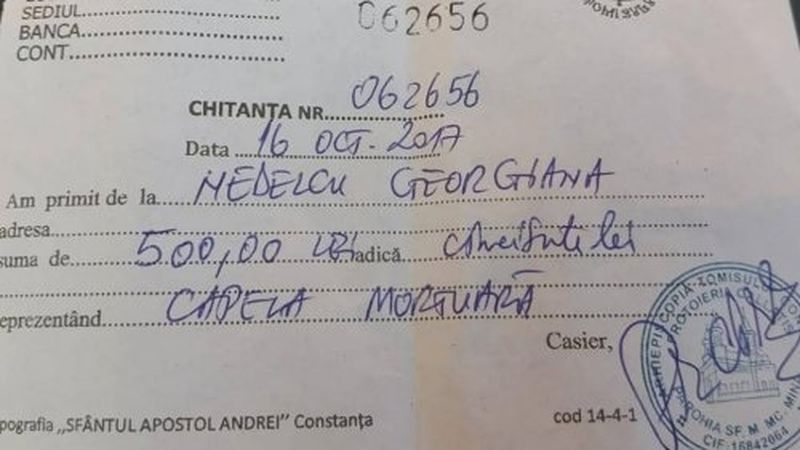 SEDIUL
BANCA
CONT
062656
CHITANȚA NR. 062656
Data 16 OCT. 2017
Am primit de la NEDELCU GEORGIANA
adresa
suma de 500,00 LEI adică cincisute lei
CAPELA MORTUARĂ
eprezentând
Casier,
pografia „SFÂNTUL APOSTOL ANDREI” Constanța
cod 14-4-1
ARHIEPISCOPIA TOMISULUI
PROTOIERIA
PAROHIA SF. M. MC. MINA
CIF: 16842064